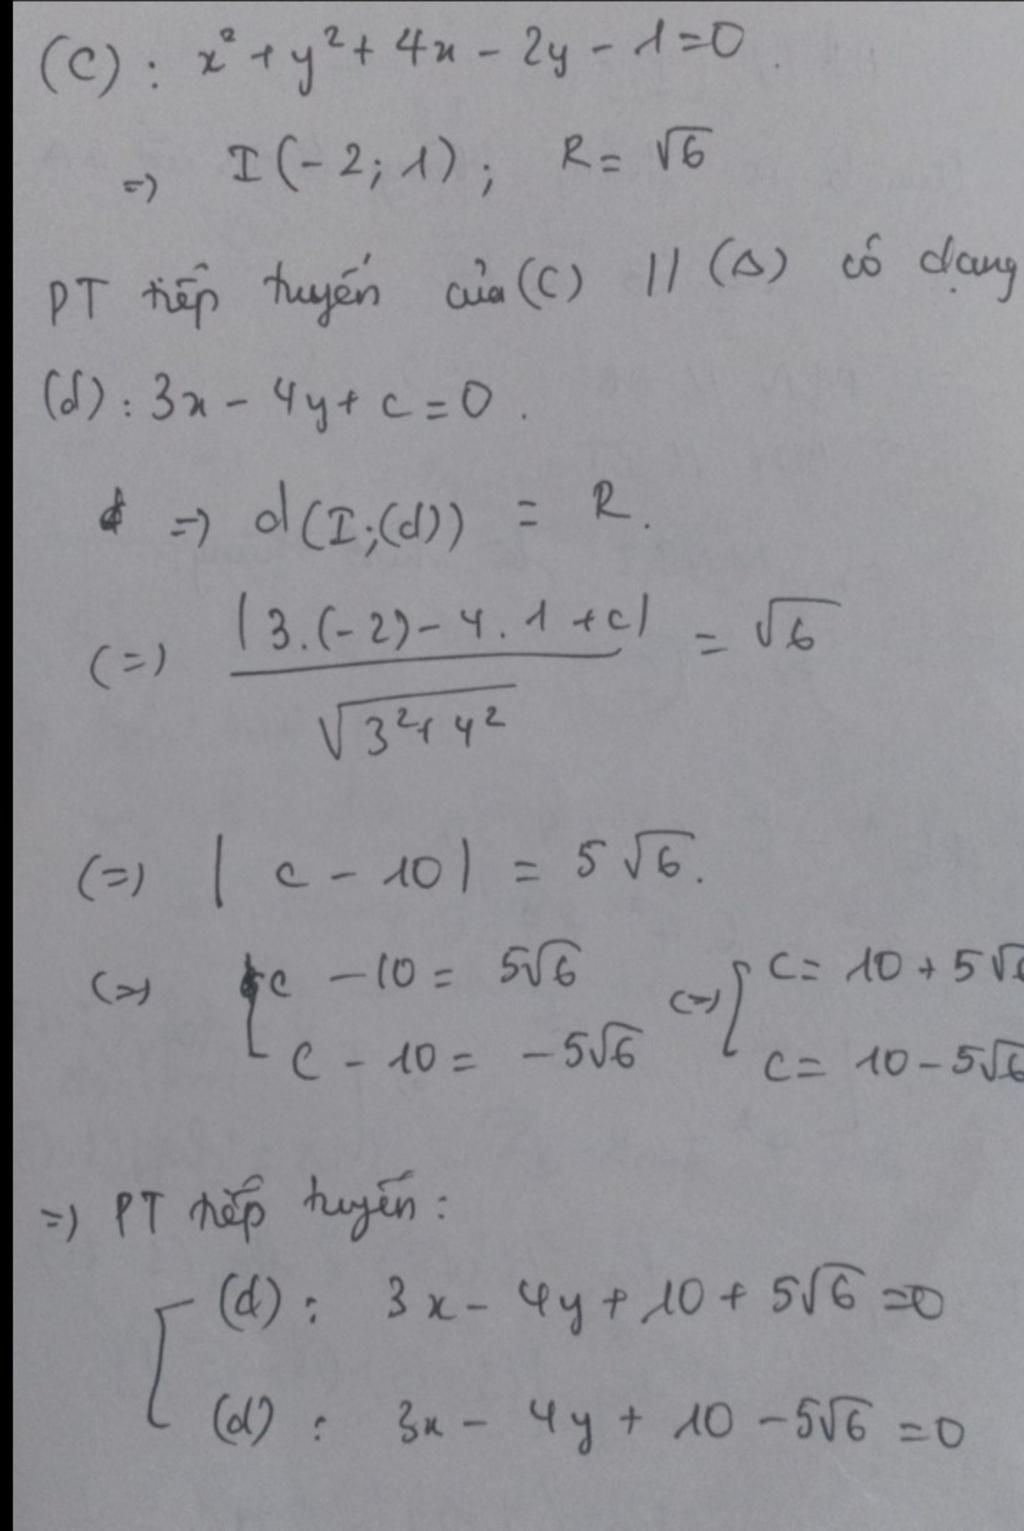 (C): x² + y² + 4x - 2y - 1 = 0.
=> I(-2; 1); R = √6
PT tiếp tuyến của (C) // (Δ) có dạng
(d): 3x - 4y + c = 0.
=> d(I;(d)) = R.
(=) |3.(-2) - 4.1 + c| / √(3² + 4²) = √6
(=) |c - 10| = 5√6.
(=) [ c - 10 = 5√6 (=) [ c = 10 + 5√6
c - 10 = -5√6 c = 10 - 5√6
=> PT tiếp tuyến:
[ (d): 3x - 4y + 10 + 5√6 = 0
(d): 3x - 4y + 10 - 5√6 = 0